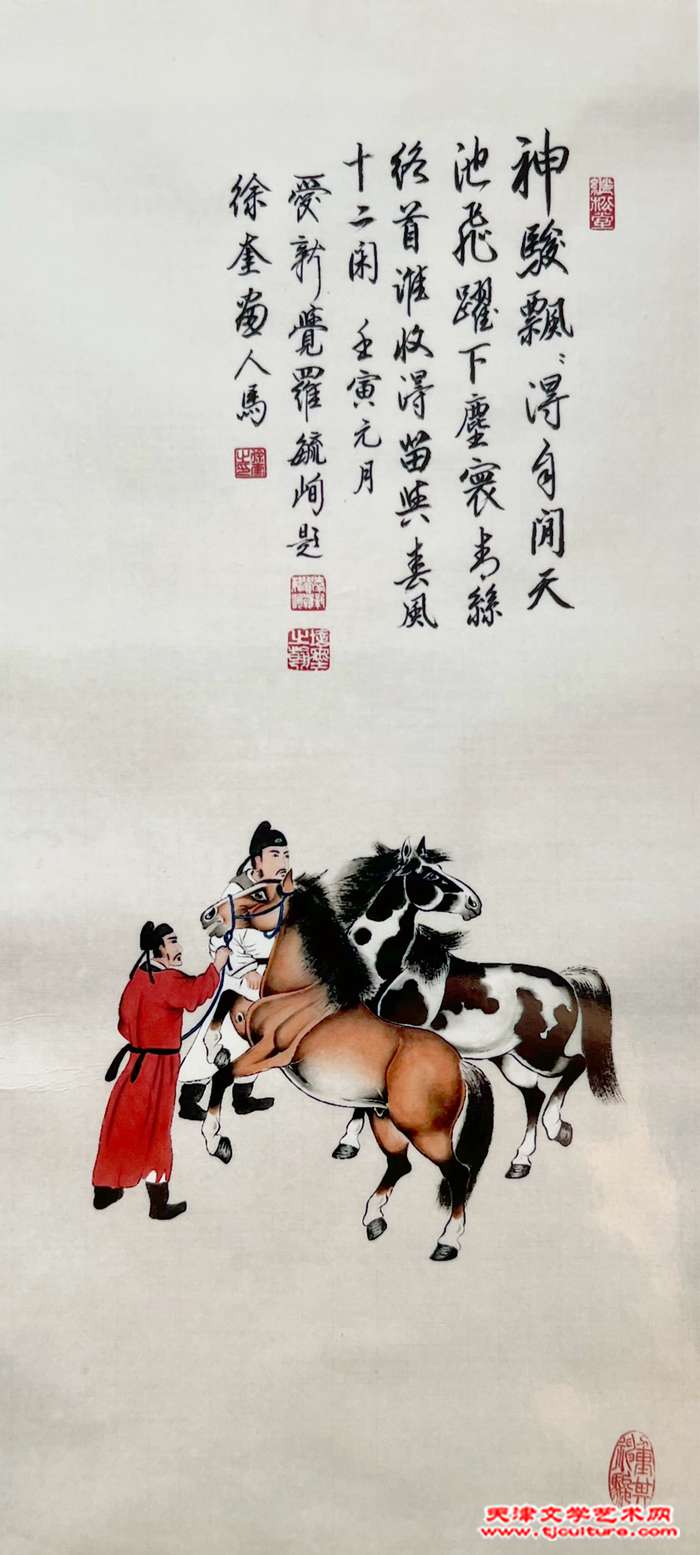 神駿飄〻得自閒天
池飛躍下塵寰青絲
絡首誰收得留與春風
十二閑 壬寅元月
愛新覺羅毓峋題
徐奎畫人馬
天津文学艺术网
www.tjculture.com